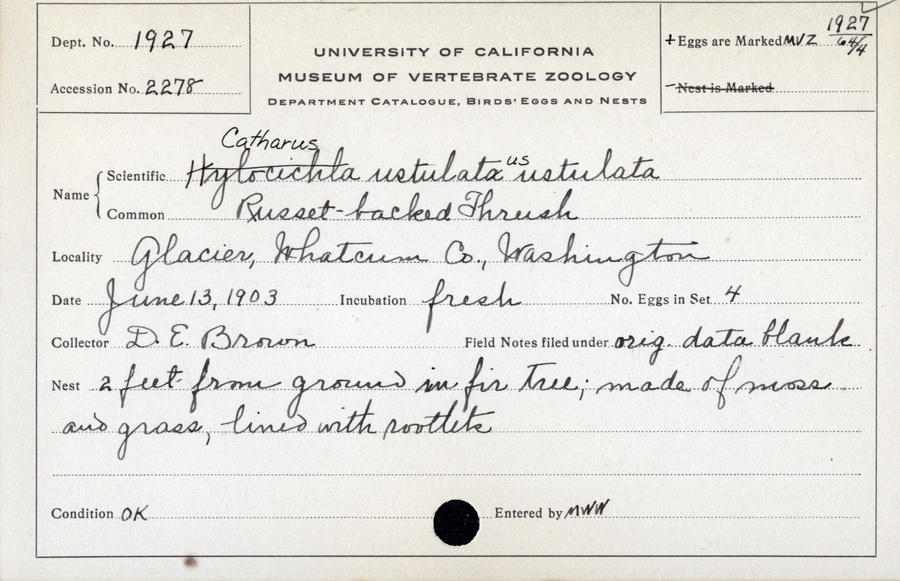 Dept. No. 1927
Accession No. 2278
UNIVERSITY OF CALIFORNIA
MUSEUM OF VERTEBRATE ZOOLOGY
DEPARTMENT CATALOGUE, BIRDS' EGGS AND NESTS
1927
+ Eggs are Marked MVZ 64/4
Nest is Marked
Catharus
Name Scientific Hylocichla ustulata us ustulata
Common Russet-backed Thrush
Locality Glacier, Whatcum Co., Washington
Date June 13, 1903 Incubation fresh No. Eggs in Set 4
Collector D. E. Brown Field Notes filed under orig. data blank
Nest 2 feet from ground in fir tree; made of moss
and grass, lined with rootlets
Condition OK Entered by MWW